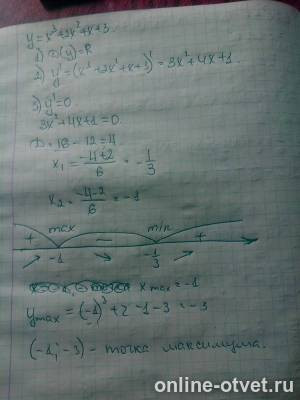 y = x³+2x²+x+3.
1) D(y)=R
2) y' = (x³+2x²+x+3)' = 3x²+4x+1.
3) y'=0.
3x²+4x+1=0.
D = 16-12=4
x₁ = (-4+2)/6 = -1/3
x₂ = (-4-2)/6 = -1
max min
+ − +
-1 -1/3
x max = -1
y max = (-1)³+2-1-3 = -3
(-1; -3) - точка максимума.
online-otvet.ru